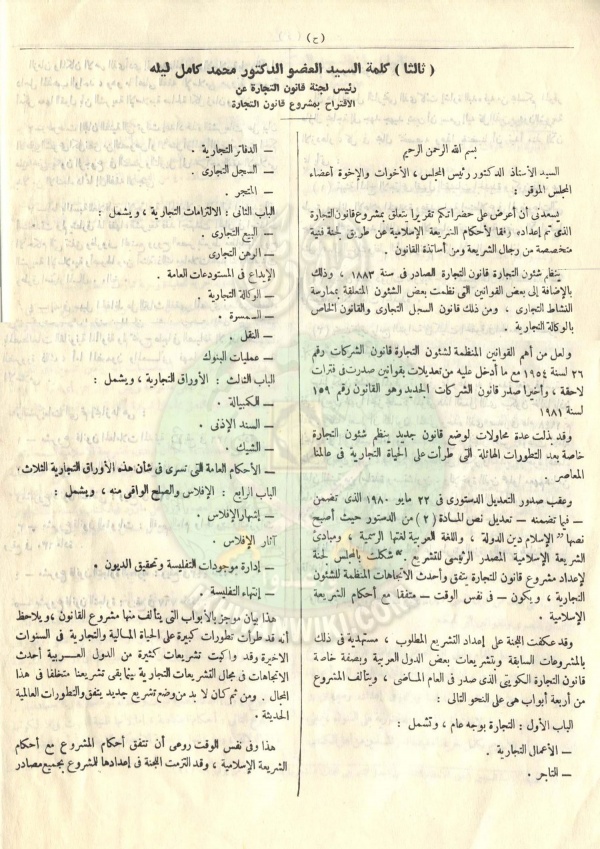 (ح)
( ثالثا ) كلمة السيد العضو الدكتور محمد كامل ليله
رئيس لجنة قانون التجارة عن
الاقتراح بمشروع قانون التجارة
بسم الله الرحمن الرحيم
السيد الأستاذ الدكتور رئيس المجلس ، الأخوات والإخوة أعضاء
المجلس الموقر :
يسعدنى أن أعرض على حضراتكم تقريرا يتعلق بمشروع قانون التجارة
الذى تم إعداده وفقا لأحكام الشريعة الإسلامية عن طريق لجنة فنية
متخصصة من رجال الشريعة ومن أساتذة القانون .
ينظم شئون التجارة قانون التجارة الصادر فى سنة ١٨٨٣ ، وذلك
بالإضافة إلى بعض القوانين التى نظمت بعض الشئون المتعلقة بممارسة
النشاط التجارى ، ومن ذلك قانون السجل التجارى والقانون الخاص
بالوكالة التجارية .
ولعل من أهم القوانين المنظمة لشئون التجارة قانون الشركات رقم
٢٦ لسنة ١٩٥٤ مع ما أدخل عليه من تعديلات بقوانين صدرت فى فترات
لاحقة ، وأخيرا صدر قانون الشركات الجديد وهو القانون رقم ١٥٩
لسنة ١٩٨١
وقد بذلت عدة محاولات لوضع قانون جديد ينظم شئون التجارة
خاصة بعد التطورات الهائلة التى طرأت على الحياة التجارية فى عالمنا
المعاصر .
وعقب صدور التعديل الدستورى فى ٢٢ مايو ١٩٨٠ الذى تضمن
– فيما تضمنه – تعديل نص المادة ( ٢ ) من الدستور حيث أصبح
نصها " الإسلام دين الدولة ، واللغة العربية لغتها الرسمية ، ومبادئ
الشريعة الإسلامية المصدر الرئيسى للتشريع " شكلت بالمجلس لجنة
لإعداد مشروع قانون للتجارة يتفق وأحدث الاتجاهات المنظمة للشئون
التجارية ، ويكون – فى نفس الوقت – متفقا مع أحكام الشريعة
الإسلامية .
وقد عكفت اللجنة على إعداد التشريع المطلوب ، مستهدية فى ذلك
بالمشروعات السابقة وبتشريعات بعض الدول العربية وبصفة خاصة
قانون التجارة الكويتى الذى صدر فى العام الماضى ، ويتألف المشروع
من أربعة أبواب هى على النحو التالى :
الباب الأول : التجارة بوجه عام ، وتشمل :
– الأعمال التجارية .
– التاجر .
– الدفاتر التجارية .
– السجل التجارى .
– المتجر .
الباب الثانى : الالتزامات التجارية ، ويشمل :
– البيع التجارى .
– الرهن التجارى
الإيداع فى المستودعات العامة .
– الوكالة التجارية .
– السمسرة .
– النقل .
– عمليات البنوك
الباب الثالث : الأوراق التجارية ، ويشمل :
– الكمبيالة .
– السند الإذنى .
– الشيك .
– الأحكام العامة التى تسرى فى شأن هذه الأوراق التجارية الثلاث.
الباب الرابع : الإفلاس والصلح الواقى منه ، ويشمل :
– إشهار الإفلاس .
آثار الإفلاس .
– إدارة موجودات التفليسة وتحقيق الديون .
– إنتهاء التفليسة .
هذا بيان موجز بالأبواب التى يتألف منها مشروع القانون ، ويلاحظ
أنه قد طرأت تطورات كبيرة على الحياة المالية والتجارية فى السنوات
الاخيرة وقد واكبت تشريعات كثيرة من الدول العربية أحدث
الاتجاهات فى مجال التشريعات التجارية بينما بقى تشريعنا متخلفا فى هذا
المجال . ومن ثم كان لا بد من وضع تشريع جديد يتفق والتطورات العالمية
الحديثة .
هذا وفى نفس الوقت روعى أن تتفق أحكام المشروع مع أحكام
الشريعة الإسلامية ، وقد التزمت اللجنة فى إعدادها للمشروع بجميع مصادر